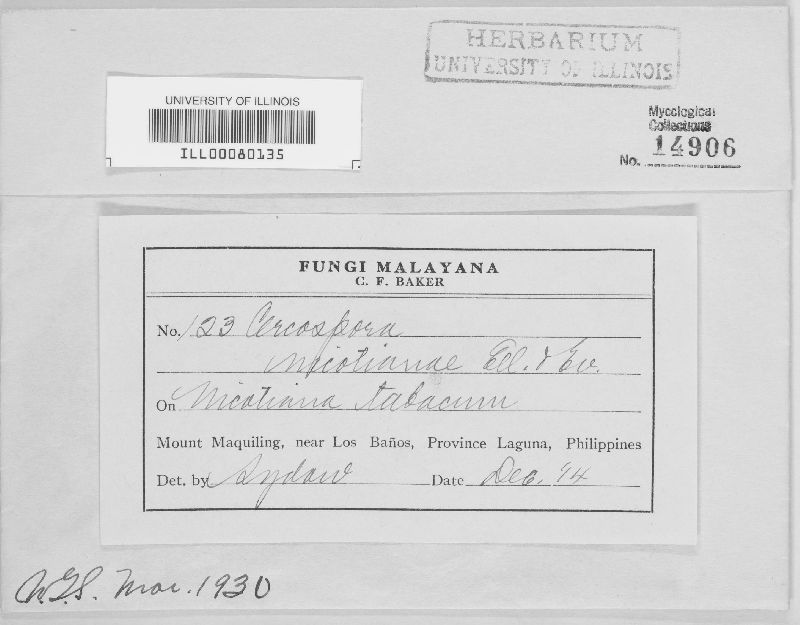 HERBARIUM
UNIVERSITY OF ILLINOIS
UNIVERSITY OF ILLINOIS
ILL00080135
Mycological
Collections
No. 14906
FUNGI MALAYANA
C. F. BAKER
No. 123 Cercospora
nicotianae Ell. & Ev.
On Nicotiana tabacum
Mount Maquiling, near Los Baños, Province Laguna, Philippines
Det. by Sydow Date Dec. '14
N.G.S. Mar. 1930